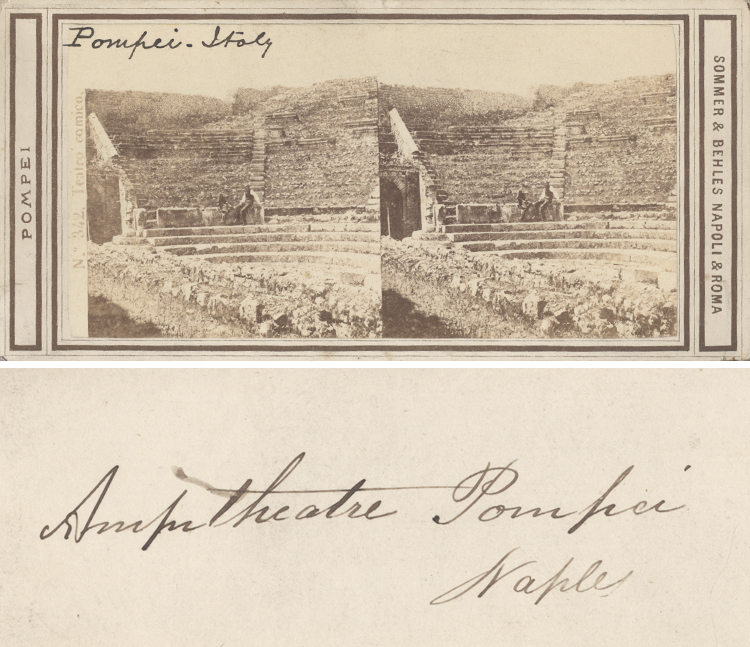 Pompei - Italy
POMPEI
N. 342. Teatro comico.
SOMMER & BEHLES NAPOLI & ROMA
Ampitheatre Pompei
Naples